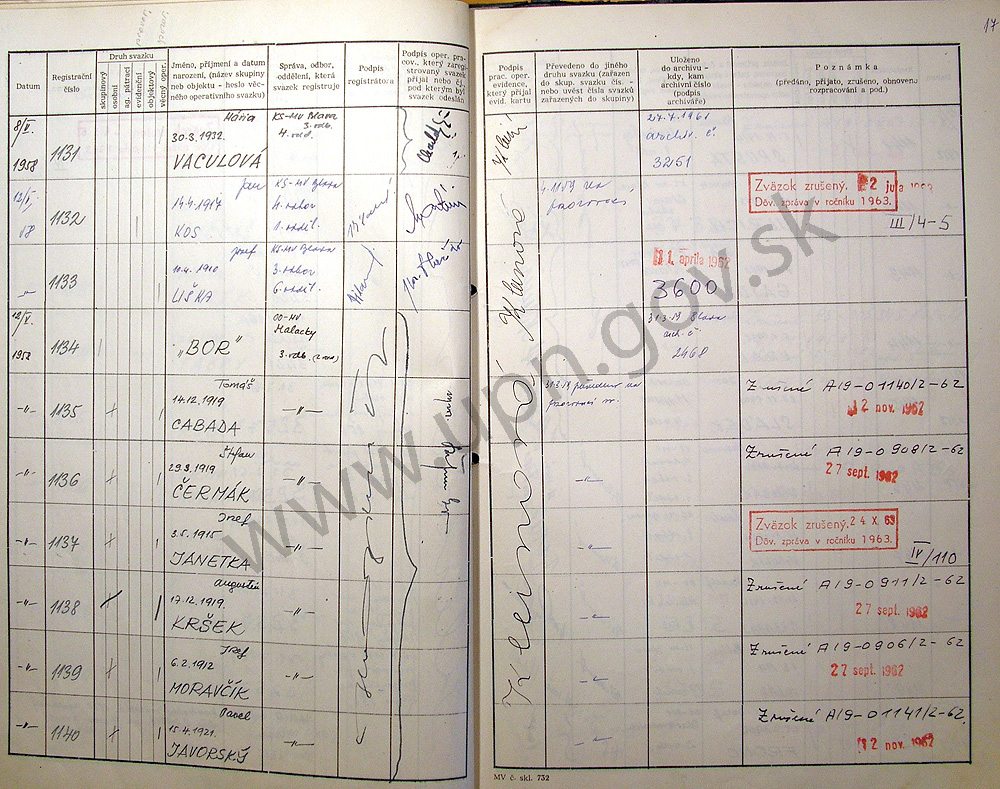 17
Datum
Registrační číslo
Druh svazku
skupinový
osobní
ag. pátrací
evidenční
objektový
věcný oper.
Jméno, příjmení a datum
narození, (název skupiny
neb objektu - heslo věc-
ného operativního svazku)
Správa, odbor,
oddělení, která
svazek registruje
Podpis
registrátora
Podpis oper. pra-
cov., který zareg-
istrovaný svazek
přijal nebo čl.
pod kterým byl
svazek odeslán
Podpis
prac. oper.
evidence,
který přijal
evid. kartu
Převedeno do jiného
druhu svazku (zařazen
do skup. svazku čís. -
nebo uvést čísla svazků
zařazených do skupiny)
Uloženo
do archivu -
kdy, kam
archivní číslo
(podpis
archiváře)
Poznámka
(předáno, přijato, zrušeno, obnoveno
rozpracování a pod.)
8/V.
1958
1131
Mária
30.3.1932.
VACULOVÁ
KS-MV Blava
3. odb.
4. odd.
27.7.1961
archív. č
3251
12/V.
58
1132
Jan
14.4.1917
KOS
KS-MV Blava
Zväzok zrušený. 22 júla
Dôv. zpráva v ročníku 1963.
III/4-5
-"-
1133
Jozef
10.4.1910
LIŠKA
KS-MV Blava
3. odbor
6. oddil.
1. apríla 1962
3600
12/V.
1958
1134
"BOR"
OO-MV
Malacky
3. odb.
31.3.59 Blava
arch. č
2468
-"-
1135
Tomáš
14.12.1919
CABADA
-"-
Zrušené A19-01140/2-62
12 nov. 1962
-"-
1136
Štefan
29.3.1919
ČERMÁK
-"-
-"-
Zrušené A19-0908/2-62
27 sept. 1962
-"-
1137
Jozef
3.5.1915
JANETKA
-"-
-"-
Zväzok zrušený. 24 X. 63
Dôv. zpráva v ročníku 1963.
IV/110
-"-
1138
Augustín
17.12.1919.
KRŠEK
-"-
-"-
Zrušené A19-0911/2-62
27 sept. 1962
-"-
1139
Jozef
6.2.1912
MORAVČÍK
-"-
-"-
Zrušené A19-0906/2-62
27 sept. 1962
-"-
1140
Pavel
15.4.1921.
JAVORSKÝ
-"-
-"-
Zrušené A19-01141/2-62.
12 nov. 1962
Kleinová
Kleinová
MV č. skl. 732
www.upn.gov.sk